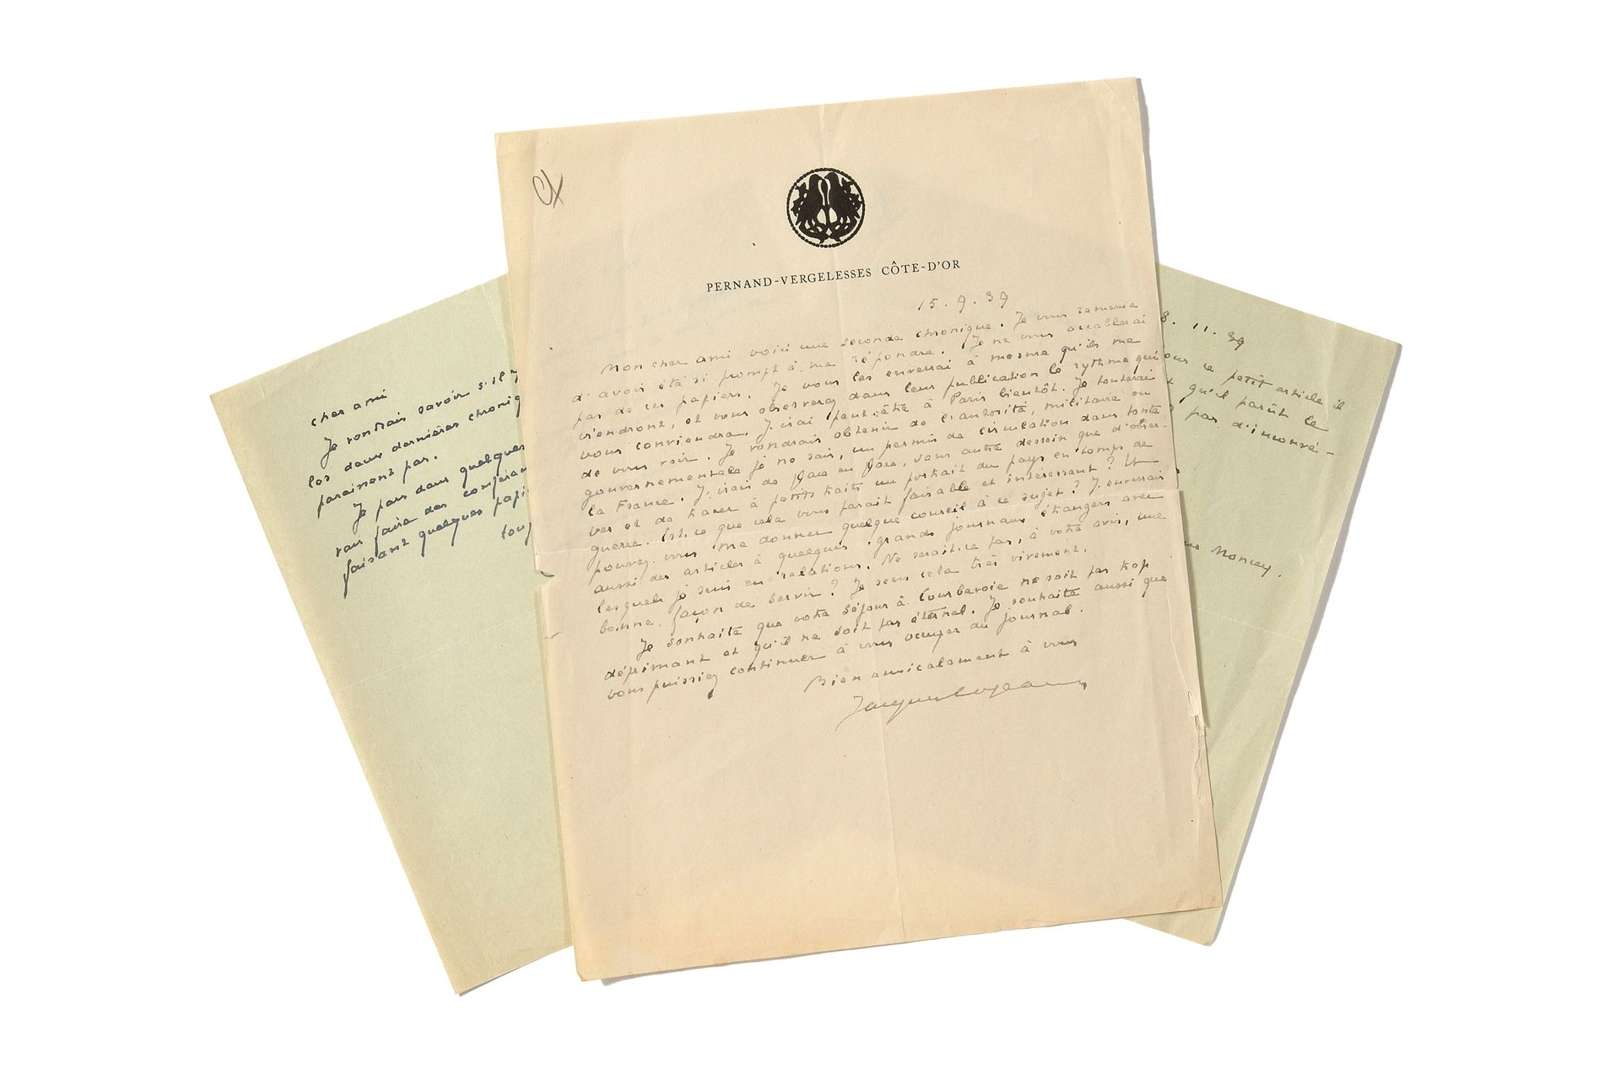 PERNAND-VERGELESSES CÔTE-D'OR
15.9.39
Mon cher ami voici une seconde chronique. Je vous remercie
d'avoir été si prompt à me répondre. Je ne vous accablerai
pas de ces papiers. Je vous les enverrai à mesure qu'ils me
viendront, et vous observerez dans leur publication le rythme qui
vous conviendra. J'irai peut-être à Paris bientôt. Je tenterai
de vous voir. Je voudrais obtenir de l'autorité, militaire ou
gouvernementale je ne sais, un permis de circulation dans toute
la France. J'irais de place en place, sans autre dessein que d'obser-
ver et de tracer à petits traits un portrait du pays en temps de
guerre. Est-ce que cela vous paraît faisable et intéressant ? Et
pouvez-vous me donner quelque conseil à ce sujet ? J'enverrais
aussi des articles à quelques grands journaux étrangers avec
lesquels je suis en relations. Ne serait-ce pas, à votre avis, une
bonne façon de servir ? Je sens cela très vivement.
Je souhaite que votre séjour à Courbevoie ne soit pas trop
déprimant et qu'il ne soit pas éternel. Je souhaite aussi que
vous puissiez continuer à vous occuper du journal.
Bien amicalement à vous
Jacques Copeau
cher ami
Je voudrais savoir s'il y
les deux dernières chroniq
paraissent pas.
Je pars dans quelques
vais faire des conféren
faisant quelques papi
touj
8.11.39
ous ce petit article il
qu'il parût le
pas d'inconvé-
Moncey.